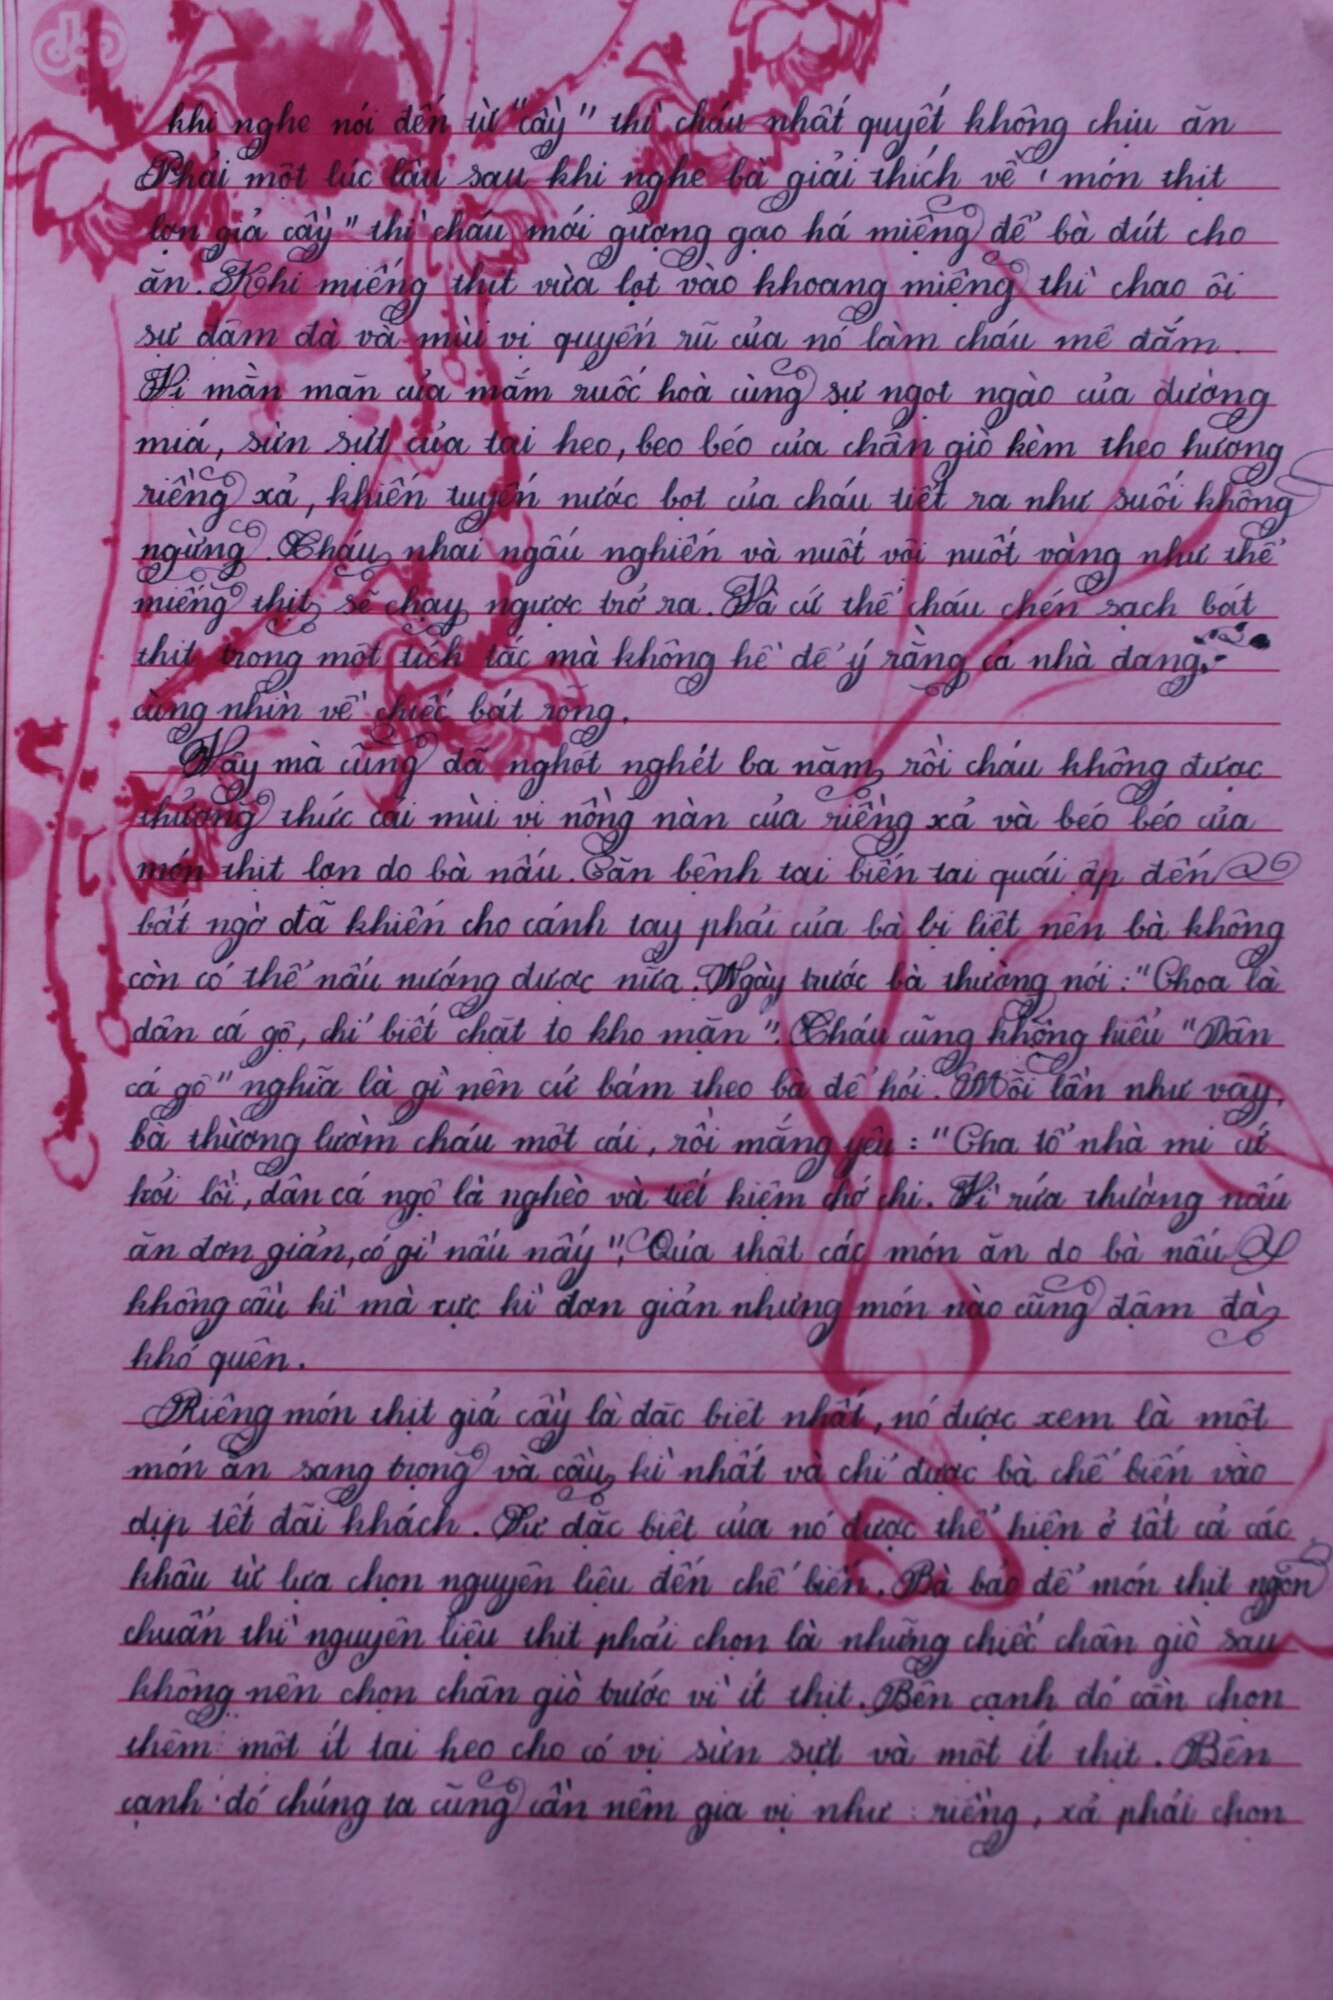 khi nghe nói đến từ "cầy" thì cháu nhất quyết không chịu ăn
Phải một lúc lâu sau khi nghe bà giải thích về ' món thịt
lợn giả cầy" thì cháu mới gượng gạo há miệng để bà đút cho
ăn. Khi miếng thịt vừa lọt vào khoang miệng thì chao ôi
sự đậm đà và mùi vị quyến rũ của nó làm cháu mê đắm.
Vị mằn mặn của mắm ruốc hoà cùng sự ngọt ngào của đường
miá, sừn sựt của tai heo, beo béo của chân giò kèm theo hương
riềng xả, khiến tuyến nước bọt của cháu tiết ra như suối không
ngừng. Cháu nhai ngấu nghiến và nuốt vội nuốt vàng như thể
miếng thịt sẽ chạy ngược trở ra. Và cứ thế cháu chén sạch bát
thịt trong một tích tắc mà không hề để ý rằng cả nhà đang
cùng nhìn về chiếc bát rỗng.
Vậy mà cũng đã nghót nghét ba năm rồi cháu không được
thưởng thức cái mùi vị nồng nàn của riềng xả và béo béo của
món thịt lợn do bà nấu. Căn bệnh tai biến tai quái ập đến
bất ngờ đã khiến cho cánh tay phải của bà bị liệt nên bà không
còn có thể nấu nướng được nữa. Ngày trước bà thường nói: "Choa là
dân cá gộ, chỉ biết chặt to kho mặn". Cháu cũng không hiểu "Dân
cá gộ" nghĩa là gì nên cứ bám theo bà để hỏi. Mỗi lần như vậy,
bà thường lườm cháu một cái, rồi mắng yêu: "Cha tổ nhà mi cứ
hỏi lồi, dân cá ngộ là nghèo và tiết kiệm chớ chi. Vì rứa thường nấu
ăn đơn giản, có gì nấu nấy". Qủa thật các món ăn do bà nấu
không cầu kì mà cực kì đơn giản nhưng món nào cũng đậm đà
khó quên.
Riêng món thịt giả cầy là đặc biệt nhất, nó được xem là một
món ăn sang trọng và cầu kì nhất và chỉ được bà chế biến vào
dịp tết đãi khách. Sự đặc biệt của nó được thể hiện ở tất cả các
khâu từ lựa chọn nguyên liệu đến chế biến. Bà bảo để món thịt ngon
chuẩn thì nguyên liệu thịt phải chọn là những chiếc chân giò sau
không nên chọn chân giò trước vì ít thịt. Bên cạnh đó cần chọn
thêm một ít tai heo cho có vị sừn sựt và một ít thịt. Bên
cạnh đó chúng ta cũng cần nêm gia vị như: riềng, xả phải chọn